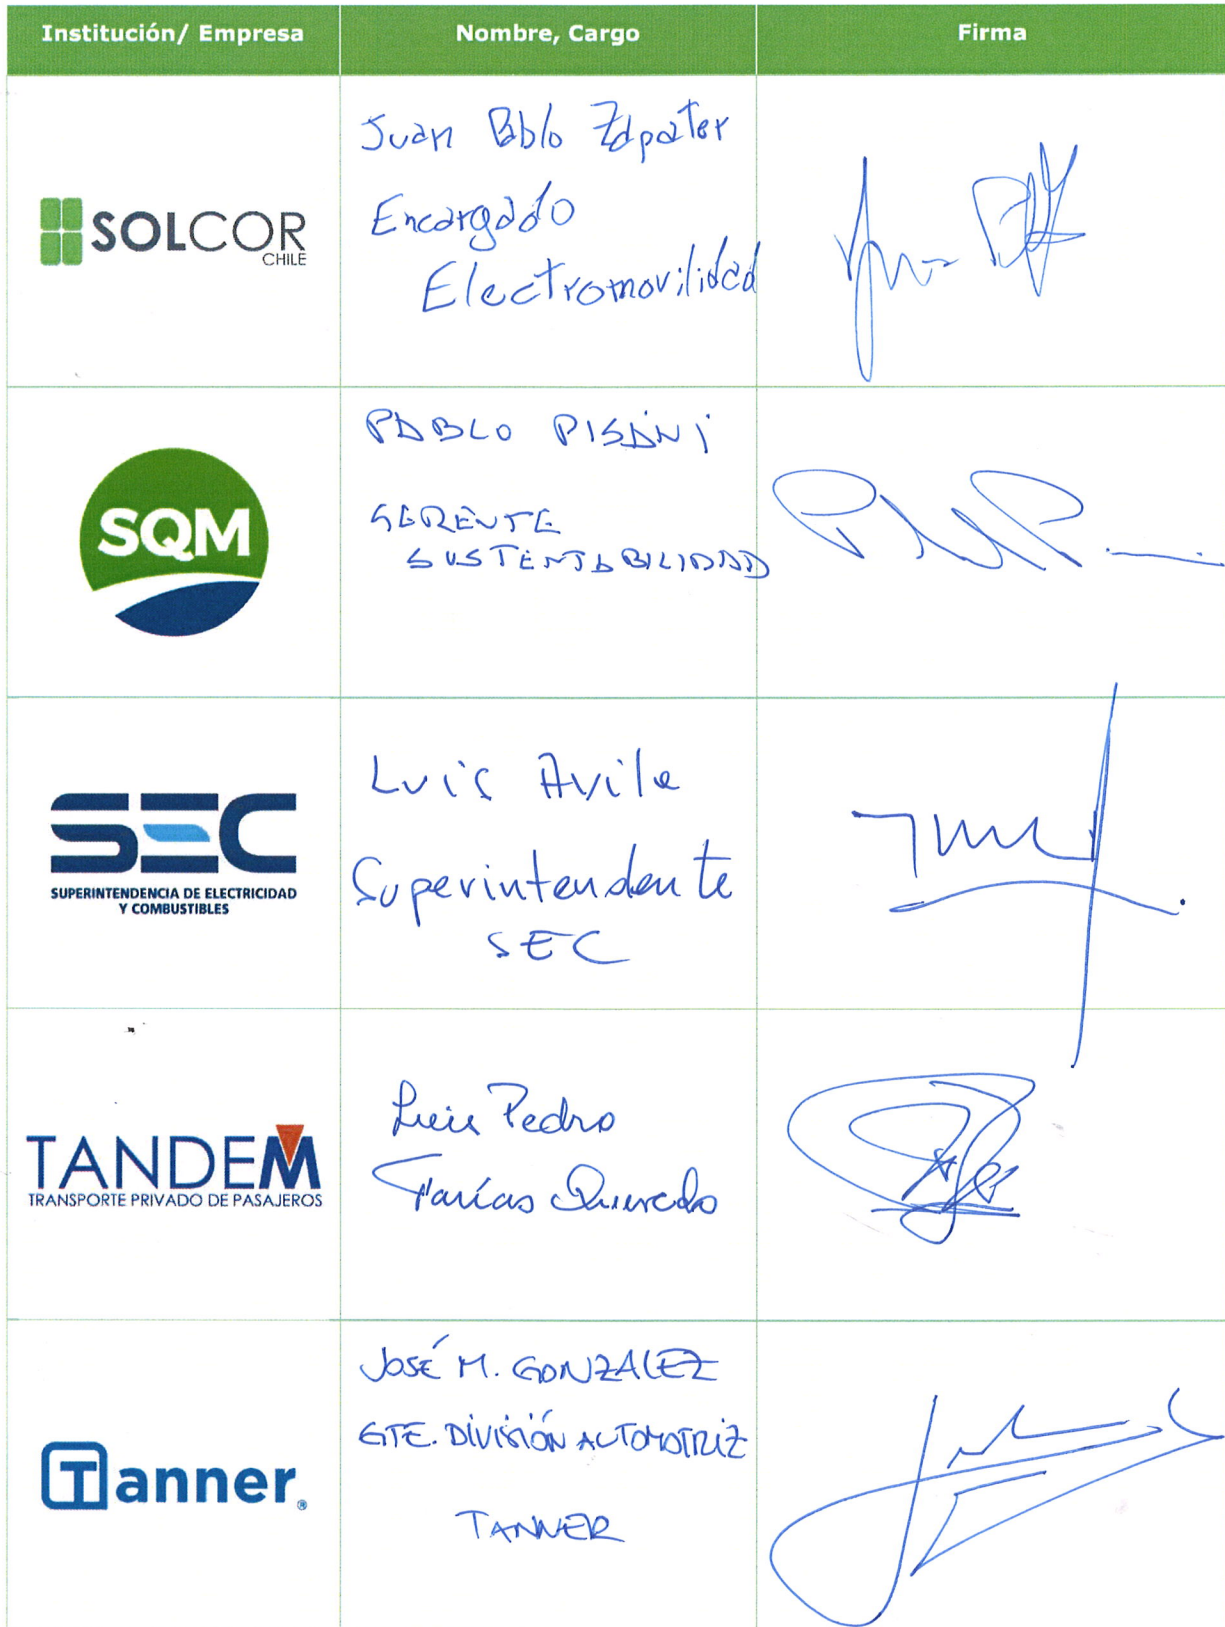 Institución/ Empresa Nombre, Cargo Firma
SOLCOR
CHILE
Juan Pablo Zapater
Encargado
Electromovilidad
SQM
PABLO PISANI
GERENTE
SUSTENTABILIDAD
SEC
SUPERINTENDENCIA DE ELECTRICIDAD
Y COMBUSTIBLES
Luis Avila
Superintendente
SEC
TANDEM
TRANSPORTE PRIVADO DE PASAJEROS
Luis Pedro
Farías Quevedo
Tanner®
JOSÉ M. GONZALEZ
GTE. DIVISIÓN AUTOMOTRIZ
TANNER